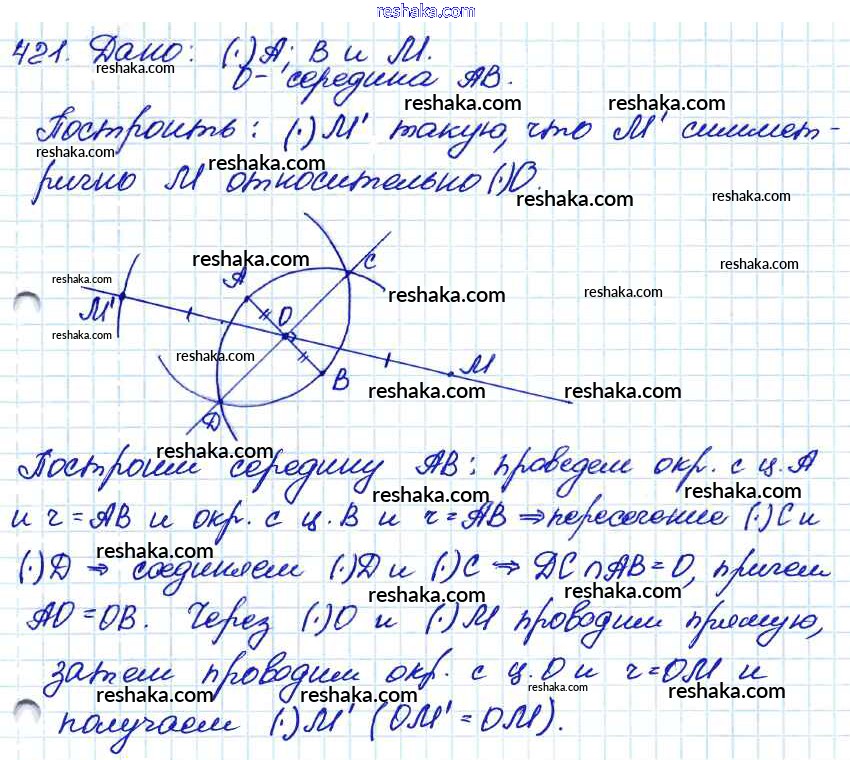 reshaka.com
421. Дано: (·)A; B и M.
reshaka.com reshaka.com
O - середина AB.
reshaka.com reshaka.com
Построить: (·)M' такую, что M' симмет-
reshaka.com reshaka.com
рично M относительно (·)O.
reshaka.com reshaka.com
reshaka.com reshaka.com
C
reshaka.com A reshaka.com reshaka.com
M' O
reshaka.com reshaka.com
M
B reshaka.com reshaka.com
D
reshaka.com
Построим середину AB: проведем окр. с ц. A
reshaka.com reshaka.com
и r = AB и окр. с ц. B и r = AB ⇒ пересечение (·)C и
reshaka.com reshaka.com
(·)D ⇒ соединяем (·)D и (·)C ⇒ DC∩AB = O, причем
reshaka.com reshaka.com
AO = OB. Через (·)O и (·)M проводим прямую,
reshaka.com reshaka.com
затем проводим окр. с ц. O и r = OM и
reshaka.com reshaka.com reshaka.com reshaka.com
получаем (·)M' (OM' = OM).
reshaka.com reshaka.com reshaka.com